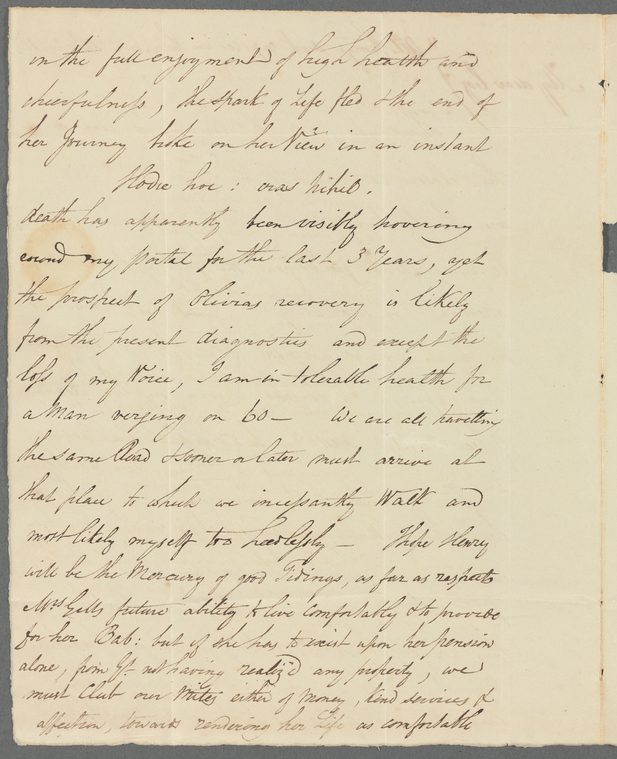 in the full enjoyment of high health and
cheerfulness, the spark of Life fled & the end of
her Journey broke on her View in an instant
Hodie hoc: cras nihil.
death has apparently been visibly hovering
round my portal for the last 3 Years, yet
the prospect of Olivias recovery is likely
from the present diagnostics and except the
loss of my Voice, I am in tolerable health for
a Man verging on 60 — We are all travelling
the same Road & sooner or later must arrive at
that place to which we incessantly Walk and
most likely myself too heedlessly — I hope Henry
will be the Mercury of good Tidings, as far as respects
Mrs Gells future ability to live comfortably & to provide
for her Bab: but if she has to exist upon her pension
alone, from Gt. not having realiz'd any property, we
must Club our Mites either of Money, kind services &
affection, towards rendering her Life as comfortable